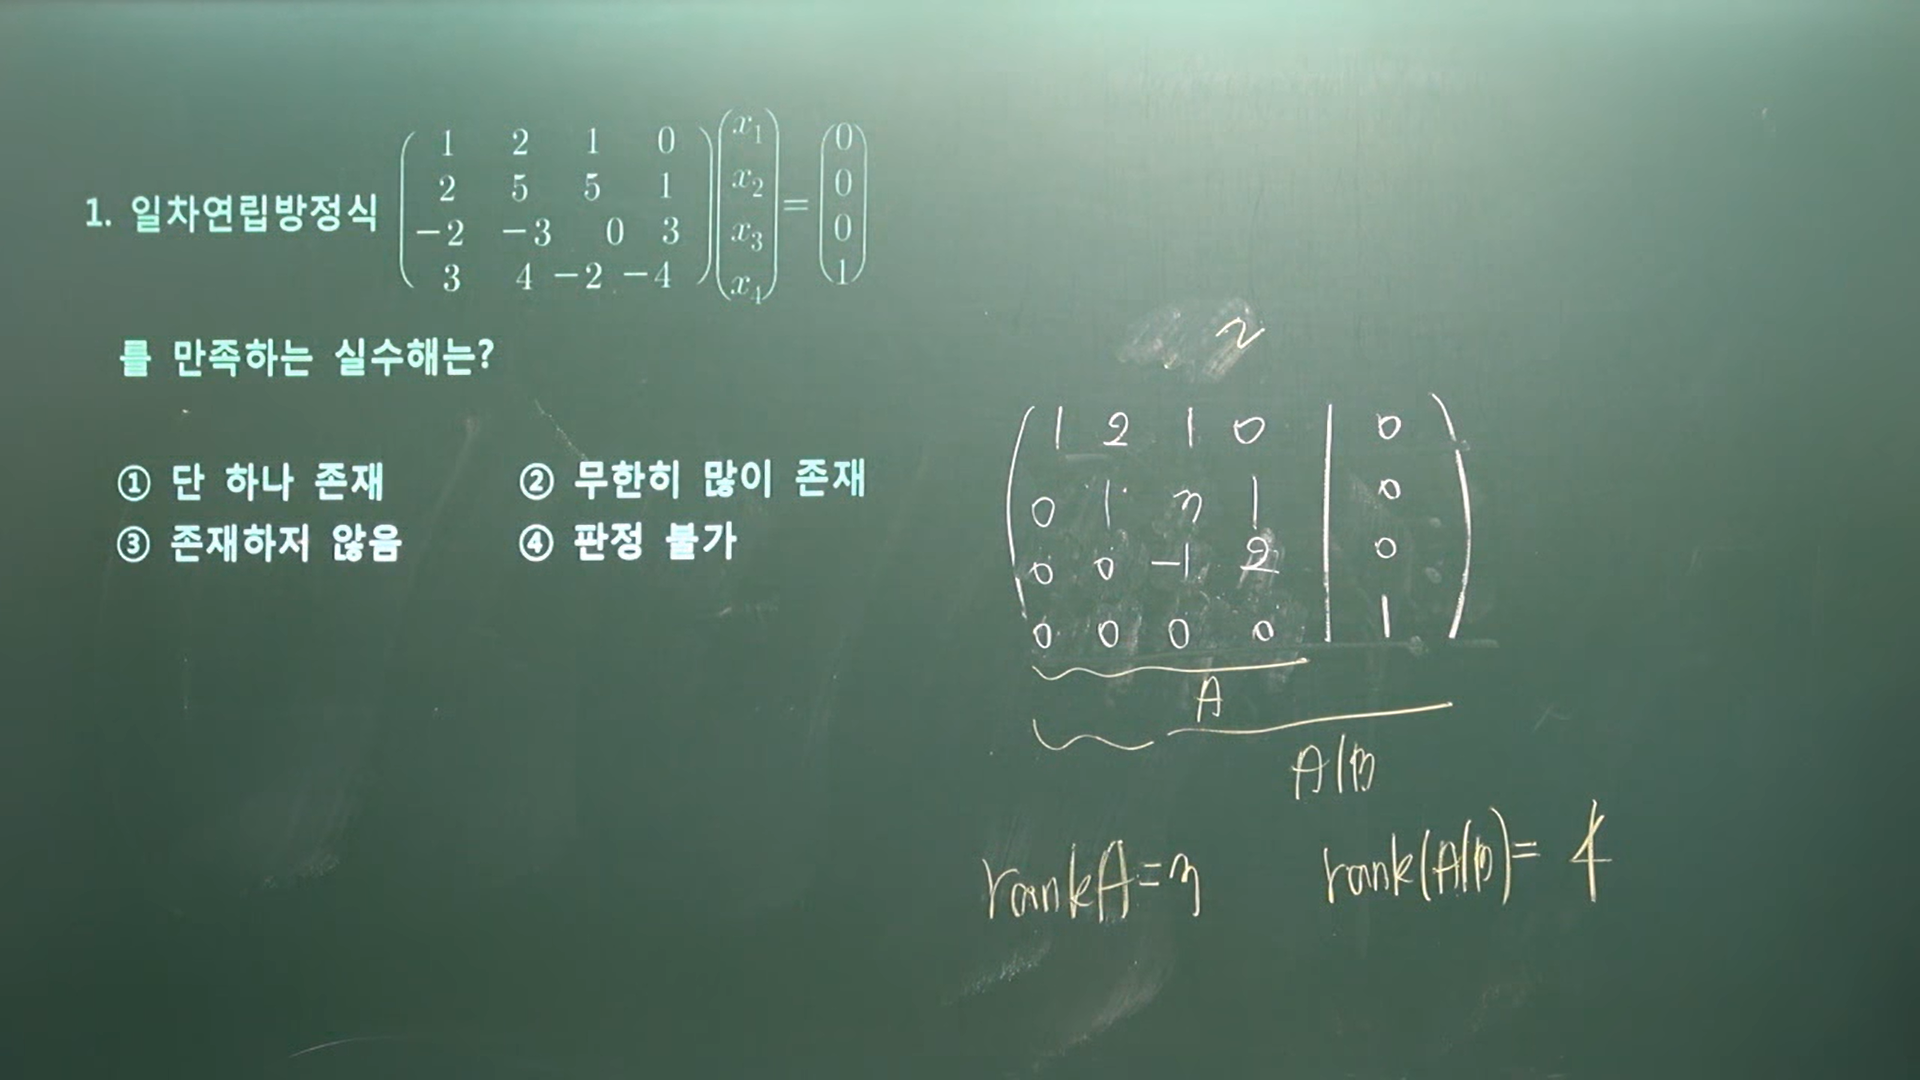 1. 일차연립방정식
1 2 1 0
2 5 5 1
−2 −3 0 3
3 4 −2 −4
x₁
x₂
x₃
x₄
=
0
0
0
1
를 만족하는 실수해는?
① 단 하나 존재 ② 무한히 많이 존재
③ 존재하지 않음 ④ 판정 불가
~
1 2 1 0 | 0
0 1 3 1 | 0
0 0 -1 2 | 0
0 0 0 0 | 1
A
A|B
rankA=3 rank(A|B)= 4